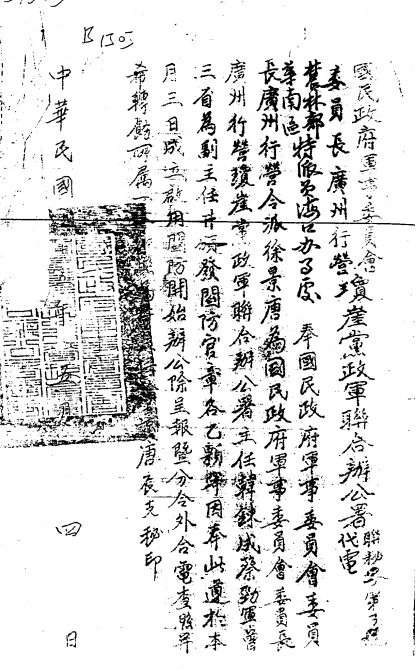 B 1303
國民政府軍事委員會
委員長廣州行營瓊崖黨政軍聯合辦公署代電 聯秘字第
農林部特派員海口办事處 奉國民政府軍事委員會委員
長廣州行營令派徐景唐為國民政府軍事委員會委員長
華南區
廣州行營瓊崖黨政軍聯合辦公署主任韓鍊成蔡勁軍
三省為副主任并頒發關防官章各乙顆等因奉此遵於本
月三日成立啟用關防開始辦公除呈報暨分令外合電查照并
希轉飭所屬一 唐辰支秘印
中華民國 年五月四日